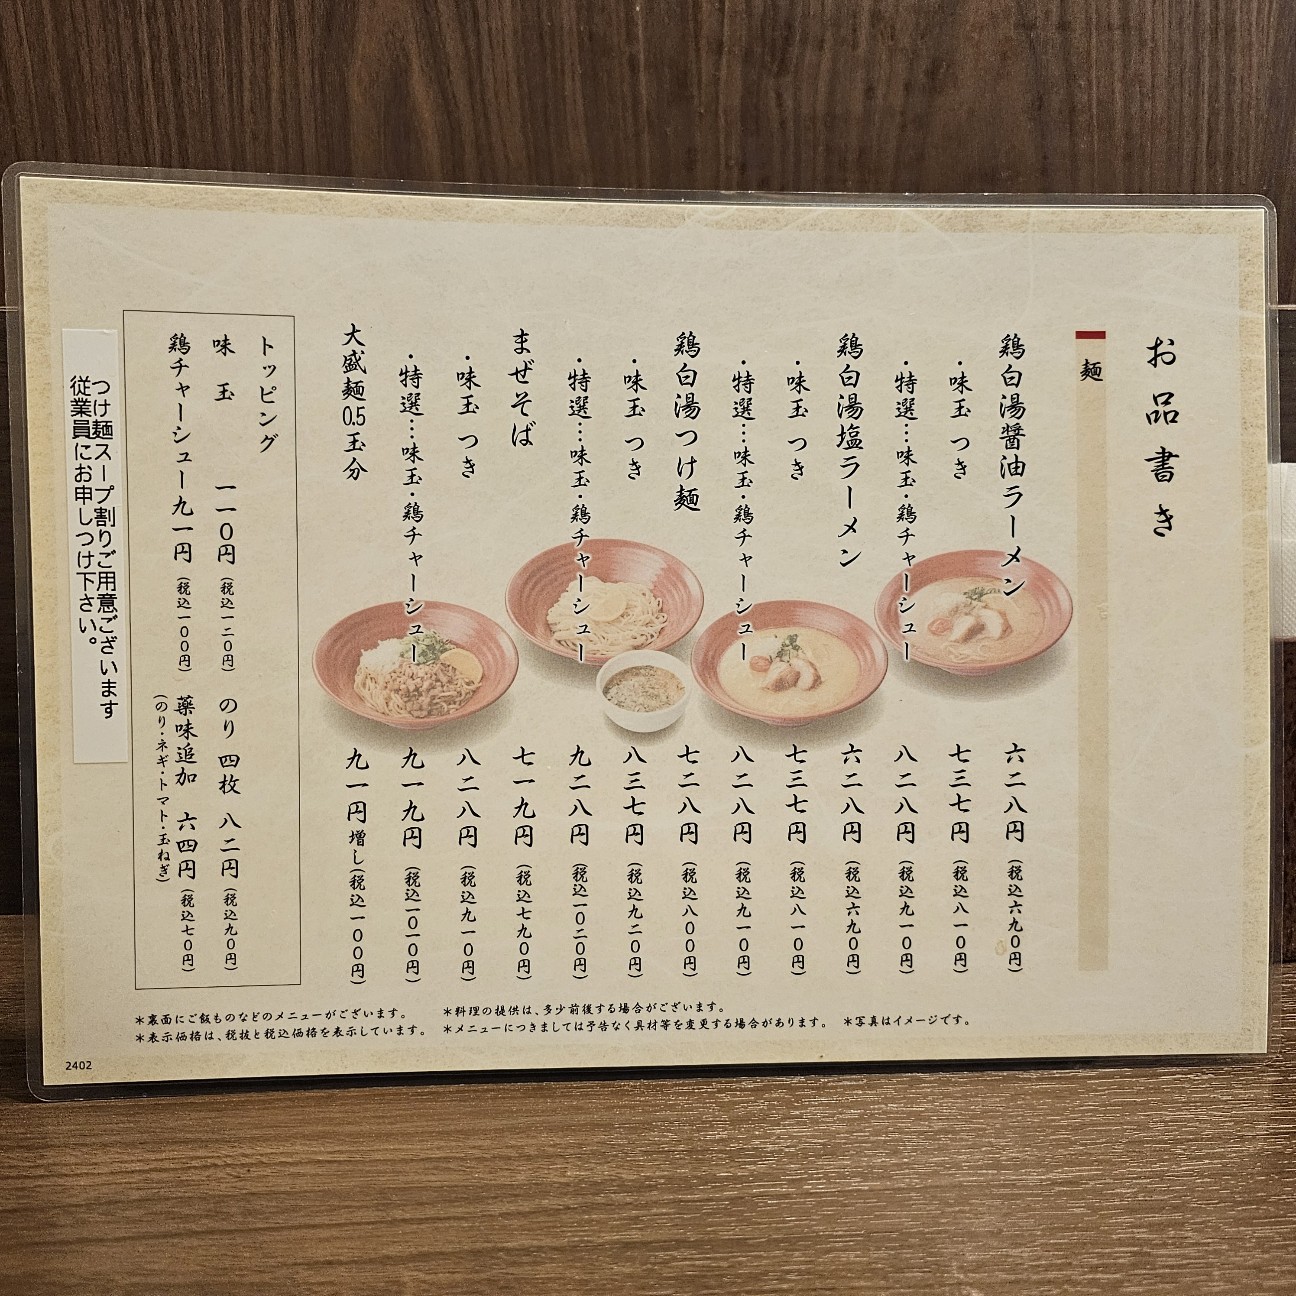 お品書き
麺
鶏白湯醤油ラーメン 六二八円（税込六九0円）
・味玉つき 七三七円（税込八一0円）
・特選…味玉・鶏チャーシュー 八二八円（税込九一0円）
鶏白湯塩ラーメン 六二八円（税込六九0円）
・味玉つき 七三七円（税込八一0円）
・特選…味玉・鶏チャーシュー 八二八円（税込九一0円）
鶏白湯つけ麺 七二八円（税込八00円）
・味玉つき 八三七円（税込九二0円）
・特選…味玉・鶏チャーシュー 九二八円（税込一0二0円）
まぜそば 七一九円（税込七九0円）
・味玉つき 八二八円（税込九一0円）
・特選…味玉・鶏チャーシュー 九一九円（税込一0一0円）
大盛麺0.5玉分 九一円増し（税込一00円）
トッピング
味玉 一一0円（税込一二0円） のり四枚 八二円（税込九0円）
鶏チャーシュー九一円（税込一00円） 薬味追加 六四円（税込七0円）
（のり・ネギ・トマト・玉ねぎ）
つけ麺スープ割りご用意ございます
従業員にお申しつけ下さい。
＊裏面にご飯ものなどのメニューがございます。
＊表示価格は、税抜と税込価格を表示しています。
＊料理の提供は、多少前後する場合がございます。
＊メニューにつきましては予告なく具材等を変更する場合があります。 ＊写真はイメージです。
2402